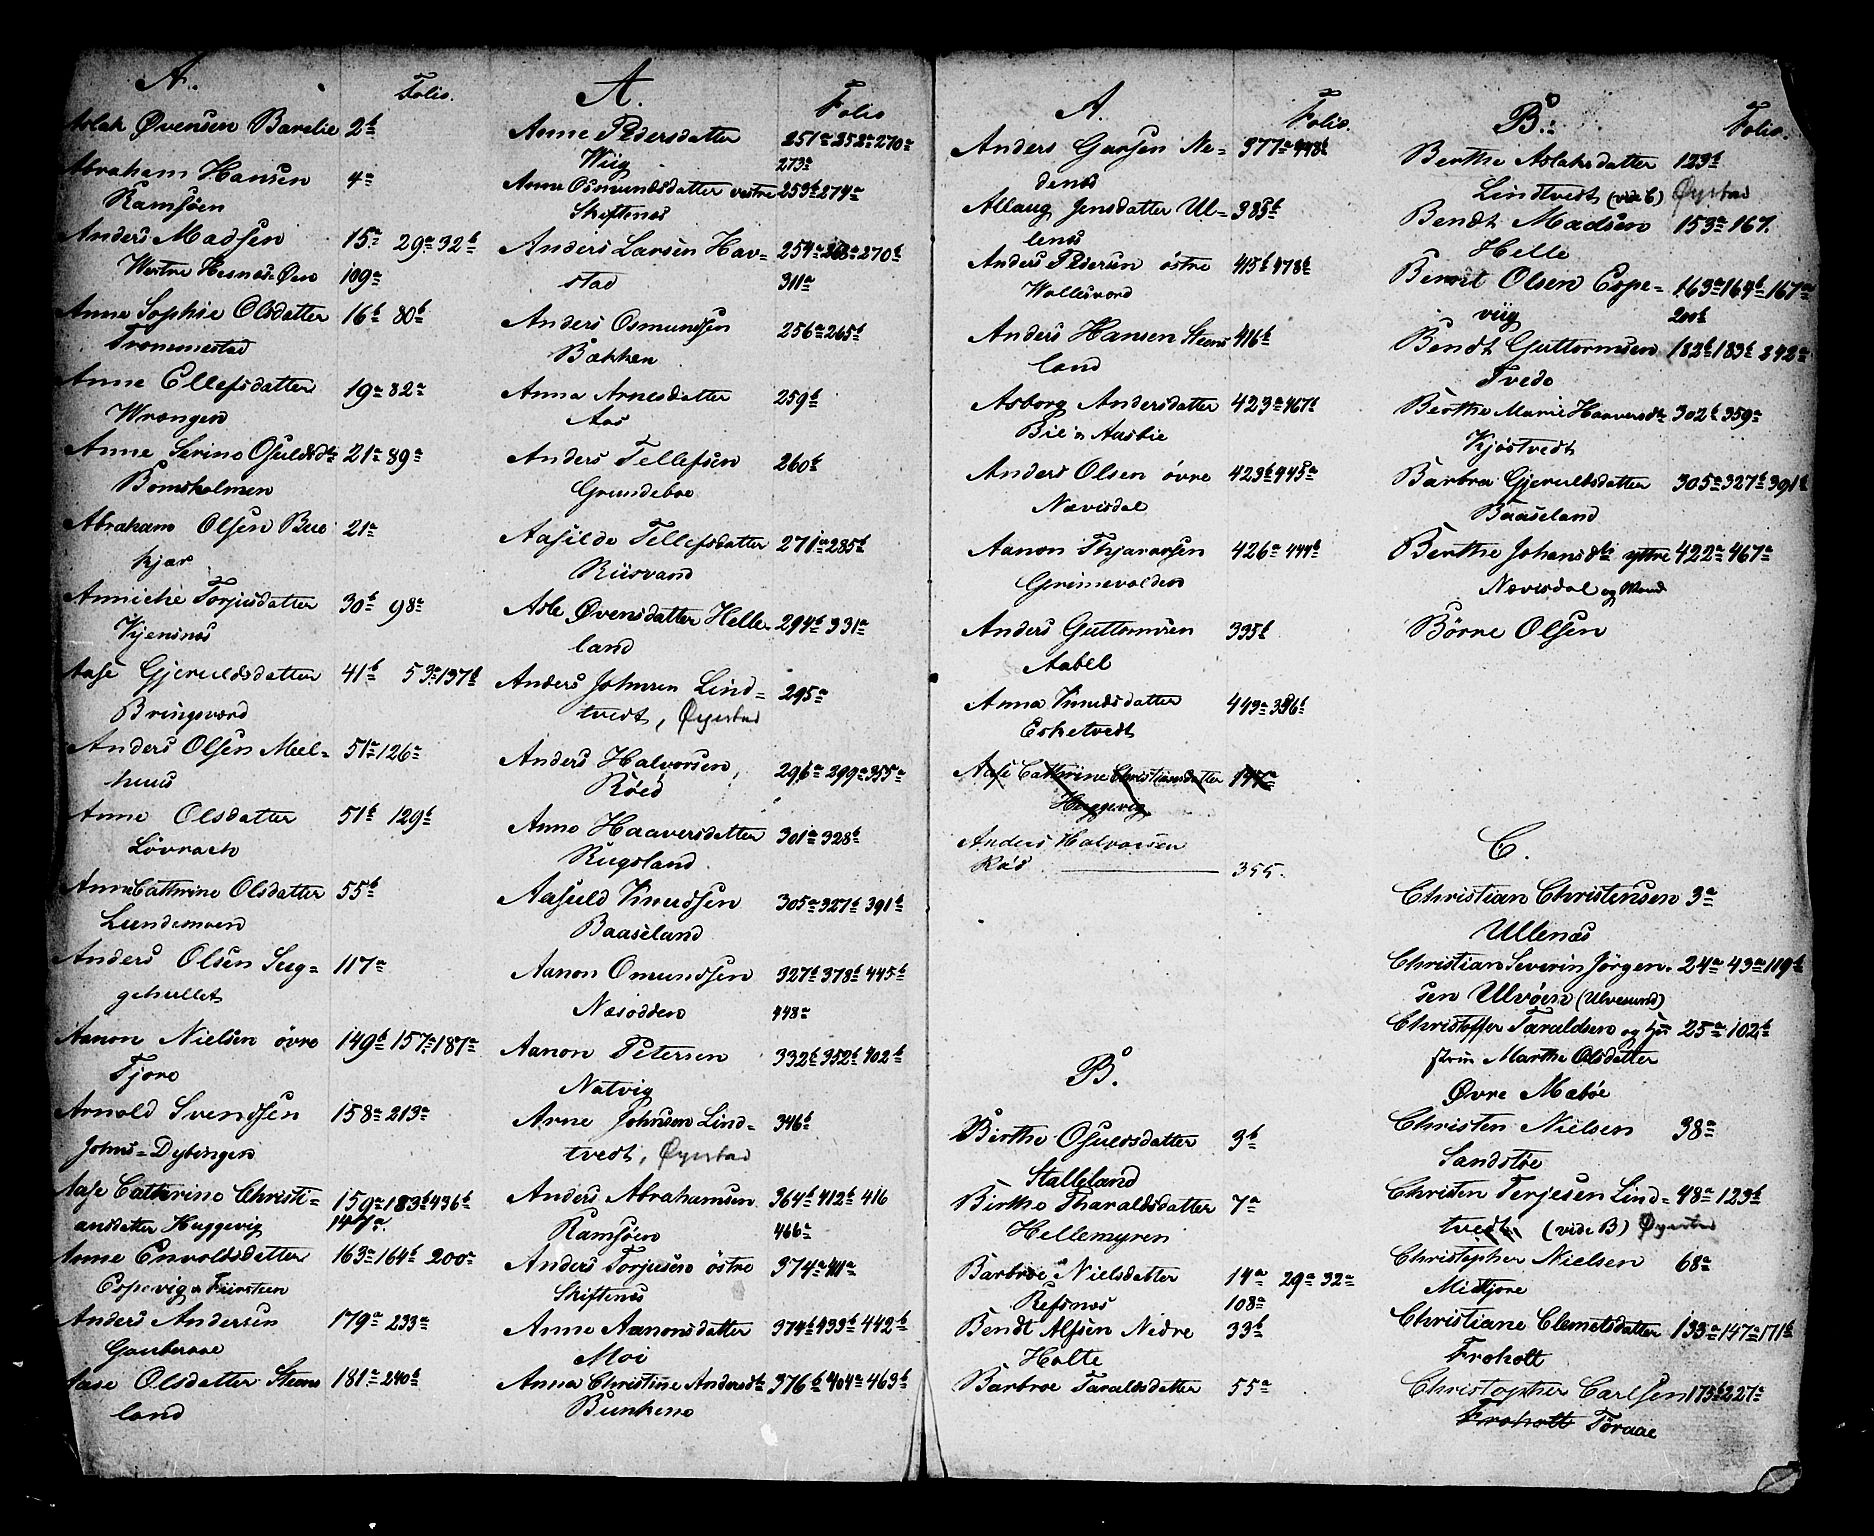 A.
Folio.
Aslak Øvensen Barelie 2b
Abraham Hansen 4a
Ramsöen
Anders Madsen 15a 29a 32b
Westre Hesnes-Øen 109a
Anne Sophie Olsdatter 16b 80b
Trommestad
Anne Ellefsdatter 19a 82a
Wrængen
Anne Serine Osuldsdtr 21a 89a
Bomsholmen
Abraham Olsen Bue 21a
kjær
Anniche Torjusdatter 30b 98a
Kjensnes
Aase Gjeruldsdatter 41b 53a 137b
Bringsværd
Anders Olsen Meel- 51a 126a
huus
Anne Olsdatter 51b 129b
Lövrach
Anne Cathrine Olsdatter 55b
Lundemoen
Anders Olsen Sug- 117a
gehullet
Aanon Nielsen övre 149b 157a 187a
Fjore
Arnold Svendsen 158a 213a
Johns-Dybingen
Aase Cathrine Christi- 159a 183b 436b
ansdatter Huggevig 147a.
Anne Envoldsdatter 163a 164b 200a
Espevig Fürsteen
Anders Andersen 179a 233a
Gouberaae
Aase Olsdatter Steens 181a 240b
land
A.
Folio
Anne Pedersdatter 251a 252a 270a
Wiig 273a
Anne Osmundsdatter vestre 253b 274a
Skiftenes
Anders Larsen Hav- 254a 268a 270b
stad 311a
Anders Osmundsen 256a 265b
Bækken
Anna Arnesdatter 259b
Aas
Anders Tellefsen 260b
Grundeboe
Aasilde Tellefsdatter 271a 285b
Riisvand
Asle Øvensdatter Helle- 294b 331a
land
Anders Johnsen Lind- 295a
tvedt, Øyestad
Anders Halvorsen 296a 299a 355a
Röed
Anne Haaversdatter 301a 328b
Rugsland
Aasuld Knudsen 305a 327b 391b
Baaseland
Aanon Omundsen 327b 378b 445b
Næsodden 448a
Aanon Petersen 332b 352b 402b
Natvig
Arne Johnsen Lind- 346b
tvedt, Øyestad
Anders Abrahamsen 364b 412b 416
Ramsöen 466a
Anders Torjusen östre 374a 411a
Skiftenes
Anne Aanonsdatter 374b 433b 442b
Moi
Anna Christine Andersdtr 376b 404a 463b
Bunkene
A.
Folio.
Anders Garsen Ne- 377a 448b
denes
Allaug Jensdatter Ul- 385b
lenes
Anders Pedersen östre 415b 478b
Wallesværd
Anders Hansen Steens 416b
land
Asborg Andersdatter 423a 467b
Bie Aasbie
Anders Olsen övre 423b 445a
Nævisdal
Aanon Thjararsen 426a 444b
Grimevolden
Anders Guttormsen 335b
Aabel
Anna Knudsdatter 449a 336b
Esketvedt
Aase Cathrine Christiansdatter 147a
Huggevig
Anders Halvorsen
Rös 355.
B.
Birthe Osuldsdatter 3b
Stalleland
Birthe Tharaldsdatter 7a
Hellemyren
Barbroe Nielsdatter 14a 29a 32a
Refsnes 108a
Bendt Alfsen Nedre 33b
Holte
Barbroe Taraldsdatter 55a
B.
Folio.
Berthe Aslaksdatter 123b
Lindtvedt (vide C) Øyestad
Bendt Madsen 153a 167.
Helle
Bernt Olsen Espe- 163a 164b 167a
viig 200b
Bendt Guttormsen 182b 183b 242a
Tvede
Berthe Marie Haaversdtr 302b 359a
Kjöstvedt
Barbra Gjeruldsdatter 305a 327b 391b
Baaseland
Berthe Johansdtr yttre 422a 467a
Nævisdal og
Börre Olsen
C.
Christian Christensen 3a
Ullenæs
Christian Severin Jörgen- 24a 43a 119b
sen Ulvöen (Ulvesund)
Christoffer Taraldsen og hu- 25a 102b
strue Marthe Olsdatter
Øvre Mæböe
Christen Nielsen 38a
Sandstöe
Christen Terjesen Lind- 48a 123b
tvedt (vide B) Øyestad
Christopher Nielsen 68a
Midtjore
Christiane Clemetsdatter 133a 147a 171b
Froholt
Christopher Carlsen 173b 227a
Froholt Toraae